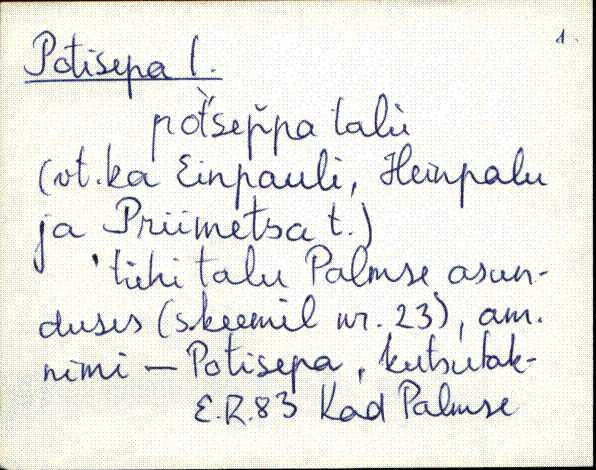 1.
Potisepa t.
pot̀'sep̆pa talù
(vt. ka Einpauli, Heinpalu
ja Priimetsa t.)
'tühi talu Palmse asun-
duses (skeemil nr. 23), am.
nimi – Potisepa, kutsutak-
E.R. 83 Kad Palmse